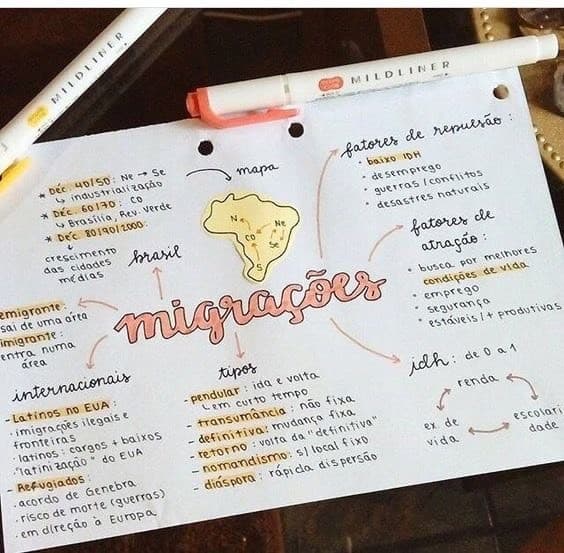 MILDLINER
MILDLINER
* Déc. 40/50: Ne → Se
↳ industrialização
* Déc. 60/70: CO
↳ Brasília, Rev. Verde
* Déc. 80/90/2000:
↳
crescimento
das cidades
médias
brasil
mapa
N
Ne
CO
Se
S
fatores de repulsão:
• baixo IDH
• desemprego
• guerras/conflitos
• desastres naturais
fatores de
atração:
• busca por melhores
condições de vida
• emprego
• segurança
• estáveis/+ produtivas
migrações
emigrante:
sai de uma área
imigrante:
entra numa
área
internacionais
- Latinos no EUA:
• imigrações ilegais e
fronteiras
• latinos: cargos + baixos
• "latinização" do EUA
- Refugiados:
• acordo de Genebra
• risco de morte (guerras)
• em direção à Europa
tipos
- pendular: ida e volta
↳ em curto tempo
- transumância: não fixa
- definitiva: mudança fixa
- retorno: volta da "definitiva"
- nomandismo: s/ local fixo
- diáspora: rápida dispersão
idh: de 0 a 1
renda
ex. de
vida
escolari
dade